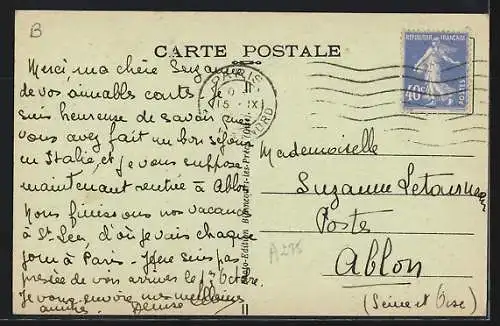 B
CARTE POSTALE
Merci ma chère Suzanne
de vos aimables cartes. Je
suis heureuse de savoir que
vous avez fait un bon séjour
en Italie, et je vous suppose
maintenant rentrée à Ablon
Nous finissons nos vacances
à St Leu, d'où je vais chaque
jour à Paris - Je ne suis pas
pressée de voir arriver le 1er Octobre.
Je vous envoie mes meilleures
amitiés. Denise
PARIS
15 - IX
NORD
REPUBLIQUE FRANÇAISE
40c
POSTES
Mademoiselle
Suzanne Letourneau
Postes
Ablon
(Seine et Oise)
A295
Photo-Edition